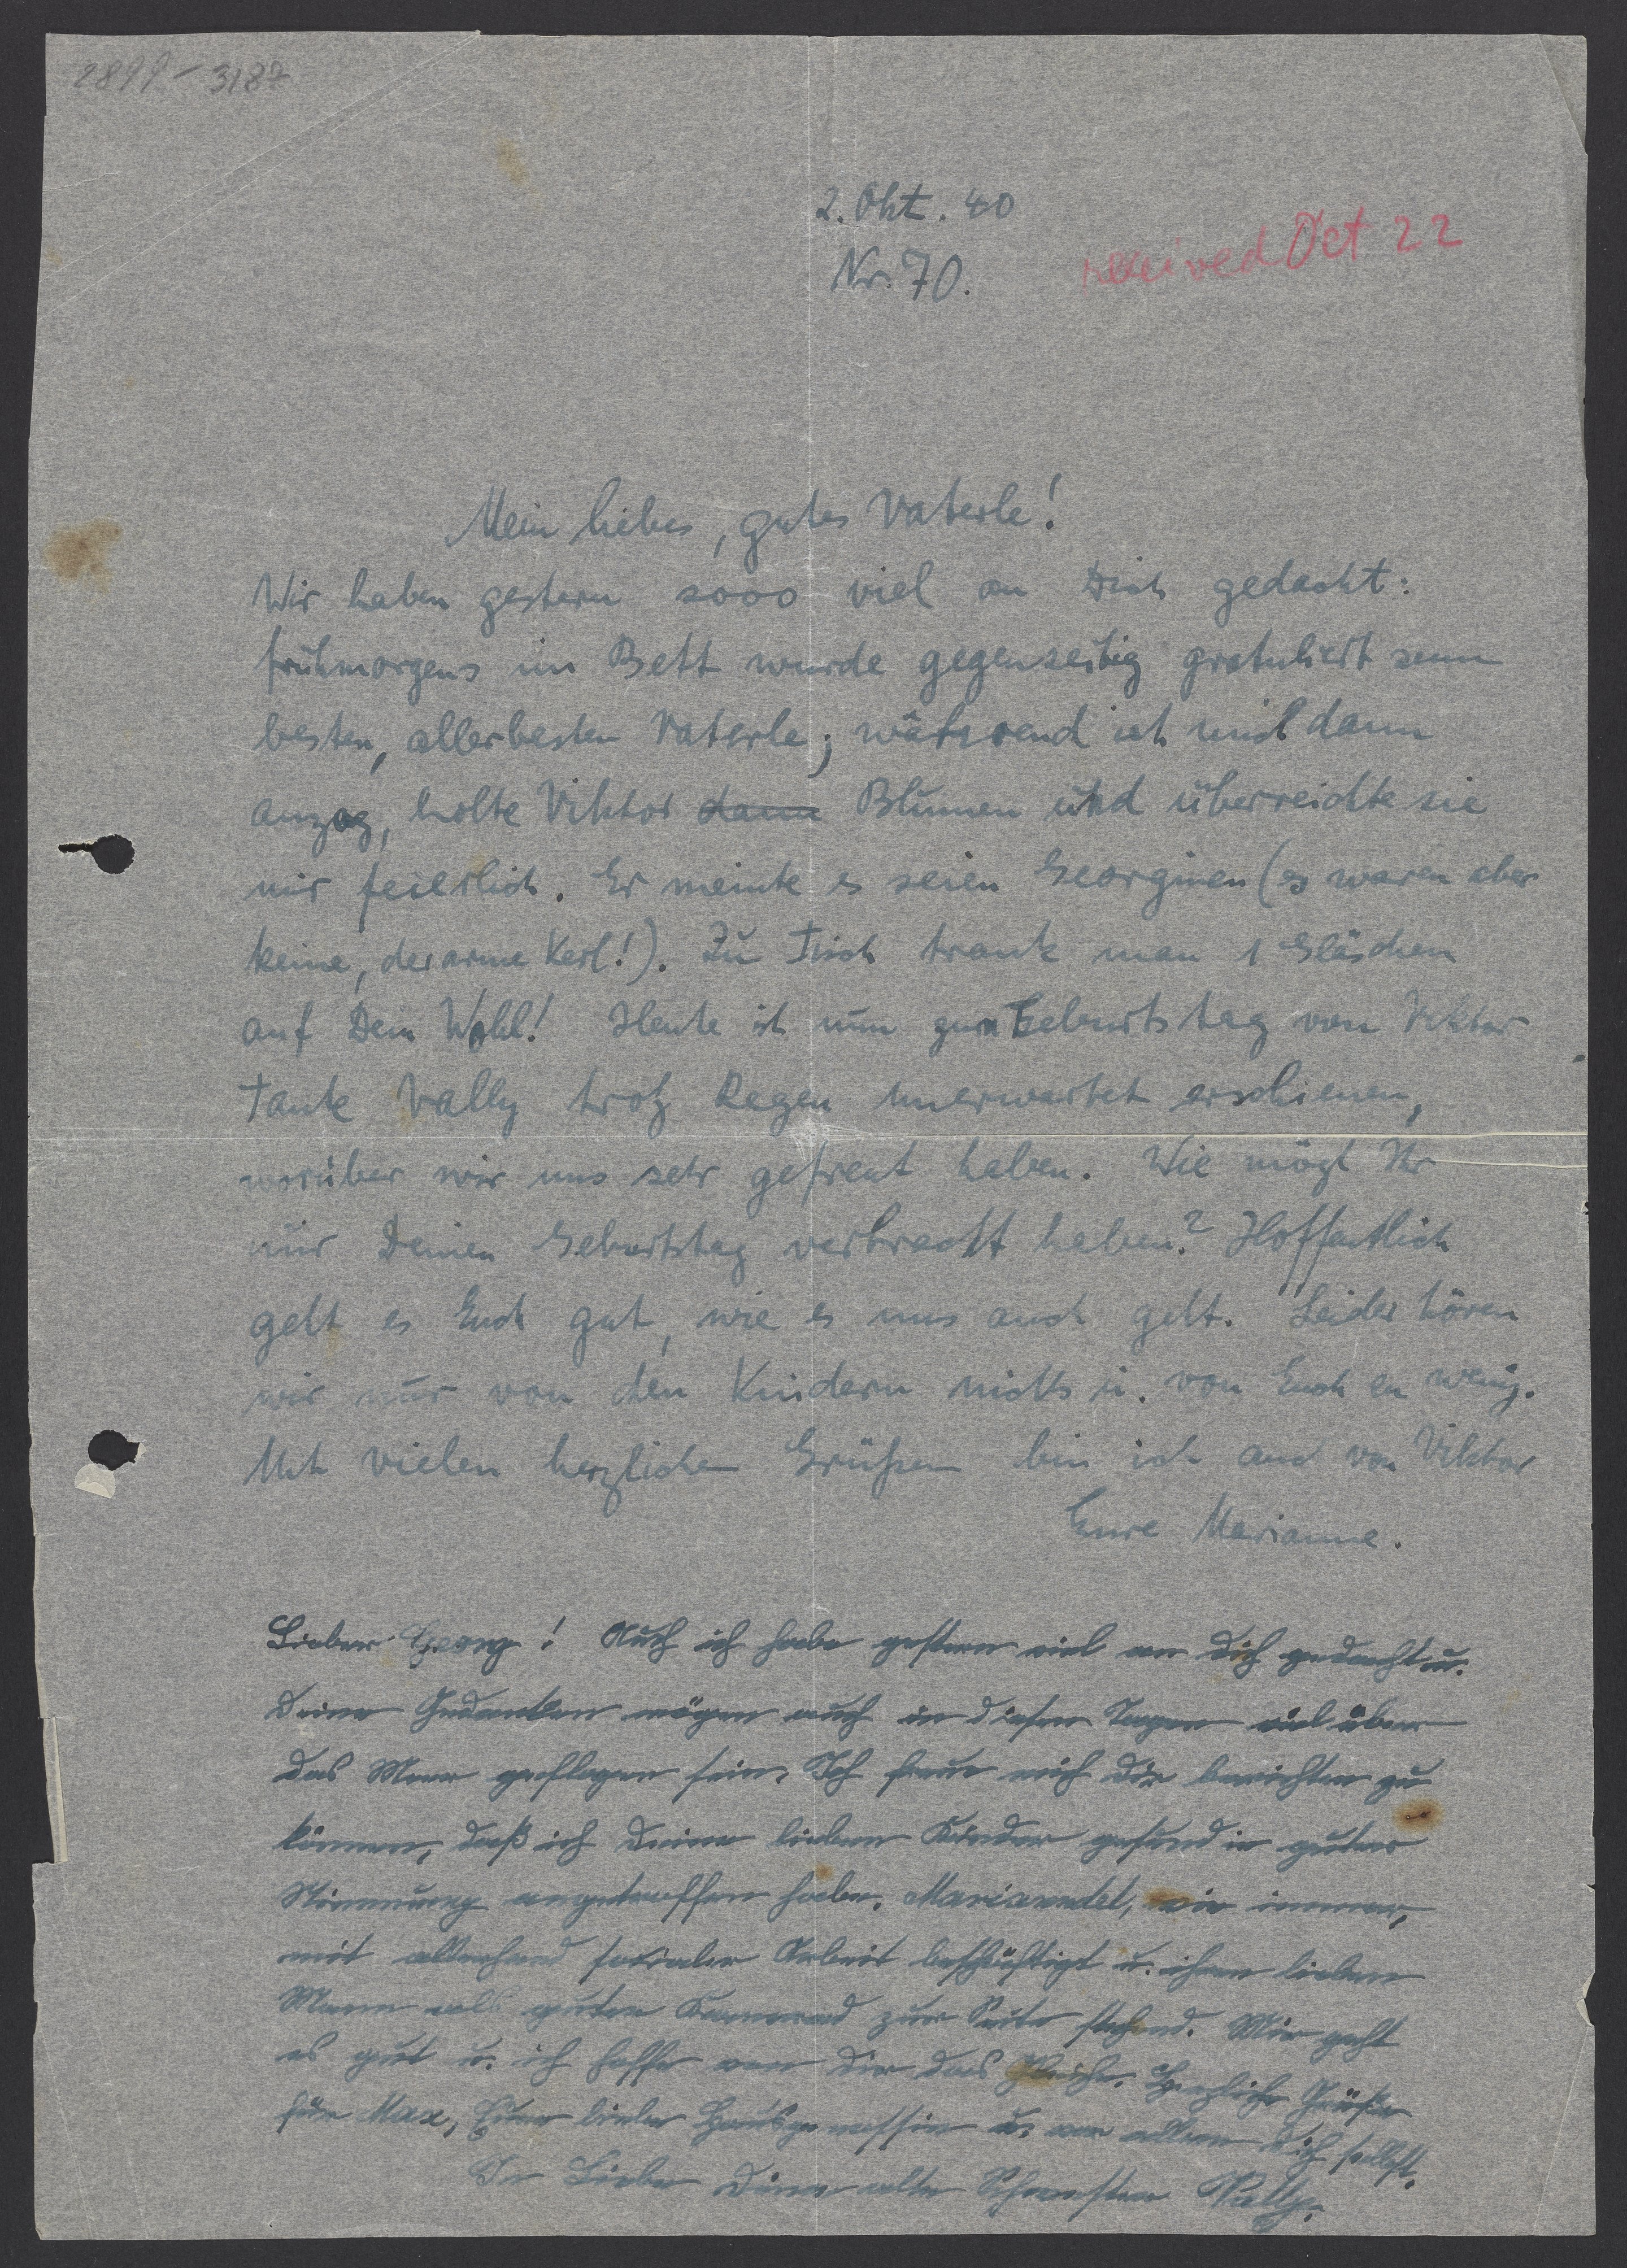 2899 - 3187
2. Okt. 40
received Oct 22
Nr. 70.
Mein liebes, gutes Vaterle!
Wir haben gestern sooo viel an Dich gedacht:
frühmorgens im Bett wurde gegenseitig gratuliert zum
besten, allerbesten Vaterle; während ich mich dann
anzog, holte Viktor dann Blumen und überreichte sie
mir feierlich. Er meinte es seien Georginen (es waren aber
keine, der arme Kerl!). Zu Tisch trank man 1 Gläschen
auf Dein Wohl! Heute ist nun zum Geburtstag von Viktor
Tante Vally trotz Regen unerwartet erschienen,
worüber wir uns sehr gefreut haben. Wie mögt Ihr
nur Deinen Geburtstag verbracht haben? Hoffentlich
geht es Euch gut, wie es uns auch geht. Leider hören
wir nur von den Kindern nichts u. von Euch zu wenig.
Mit vielen herzlichen Grüßen bin ich auch von Viktor
Eure Marianne.
Lieber Georg! Auch ich habe gestern viel an Dich gedacht u.
Deine Gedanken mögen auch in diesen Tagen viel über
das Meer geflogen sein. Ich freue mich Dir berichten zu
können, daß ich Deine lieben Kinder gesund in guter
Stimmung angetroffen habe. Mariandel, wie immer,
mit allerhand sozialer Arbeit beschäftigt u. ihren lieben
Mann als guten Kamerad zur Seite stehend. Mir geht
es gut u. ich hoffe von Dir das Gleiche. Herzliche Grüße
für Max, Eure liebe Hausgenossin u. vor allem Dich selbst.
In Liebe Deine alte Schwester Vally.